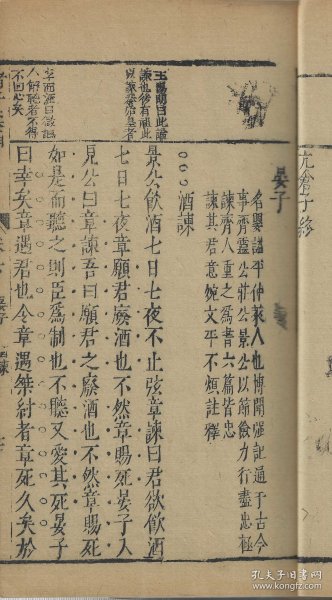 亢倉子終
晏子
名嬰諡平仲萊人也博聞強記通于古今
事齊靈公莊公景公以節儉力行盡忠極
諫齊人重之為書六篇皆忠
諫其君意婉文平不煩註釋
酒諫
景公飲酒七日七夜不止弦章諫曰君欲飲酒
七日七夜章願君廢酒也不然章賜死晏子入
見公曰章諫吾曰願君之廢酒也不然章賜死
如是而聽之則臣為制也不聽又愛其死晏子
曰幸矣章遇君也令章遇桀紂者章死久矣於
王陽明曰此諫
諫也後有
不回心矣
孔夫子旧书网